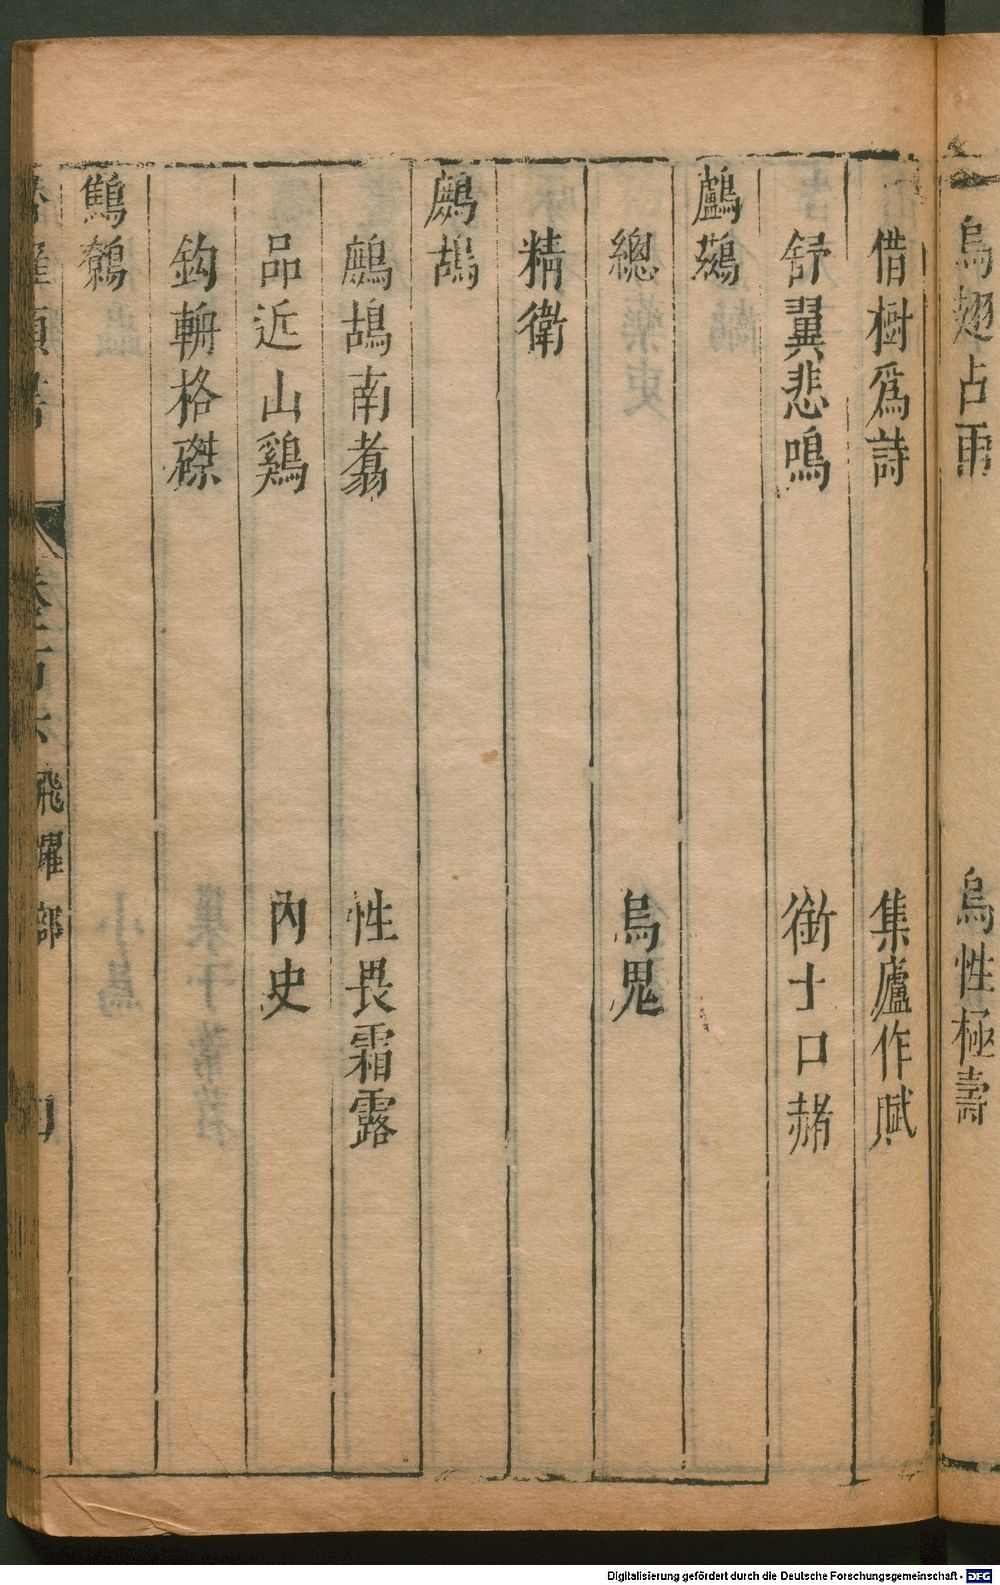 烏翅占雨 烏性極壽
借樹爲詩 集廬作賦
舒翼悲鳴 銜土口赭
鸕鷀
總 烏鬼
精衛
鷓鴣
鷓鴣南翥 性畏霜露
品近山鷄 內史
鈎輈格磔
鷦鷯
卷百六 飛躍部
Digitalisierung gefördert durch die Deutsche Forschungsgemeinschaft - DFG